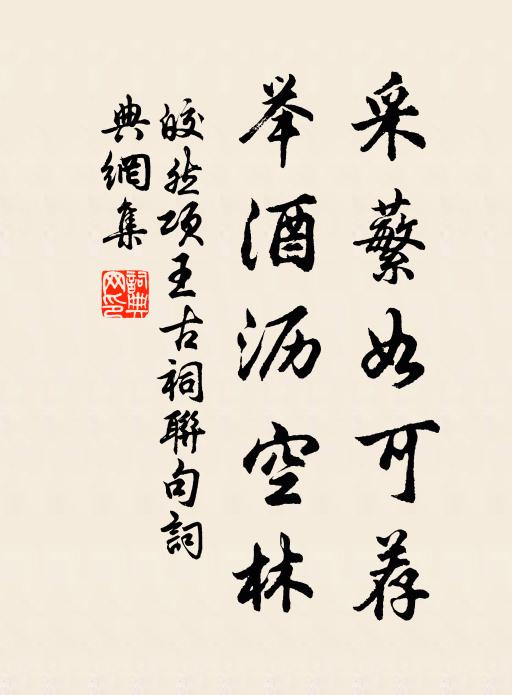 采蘩如可荐
举酒沥空林
皎然项王古祠聯句詞
典網集
詞典
网印